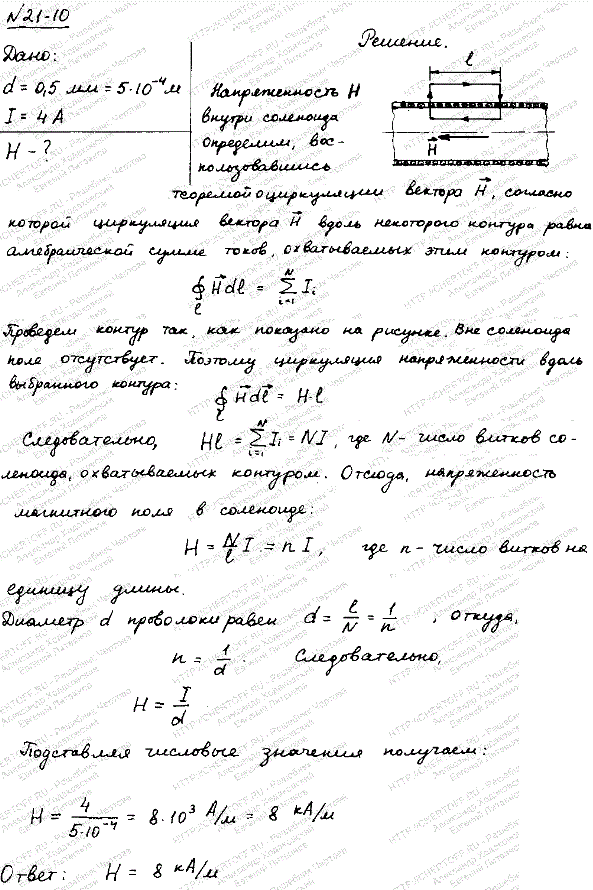 №21-10
Дано:
d = 0,5 мм = 5·10⁻⁴ м
I = 4 А
H - ?
Решение.
l
H⃗
Напряженность H
внутри соленоида
определим, вос-
пользовавшись
теоремой о циркуляции вектора H⃗, согласно
которой циркуляция вектора H⃗ вдоль некоторого контура равна
алгебраической сумме токов, охватываемых этим контуром:
∮_l H⃗dl = Σ_{i=1}^{N} I_i
Проведем контур так, как показано на рисунке. Вне соленоида
поле отсутствует. Поэтому циркуляция напряженности вдоль
выбранного контура:
∮_l H⃗dl⃗ = H·l
Следовательно, Hl = Σ_{i=1}^{N} I_i = NI, где N - число витков со-
леноида, охватываемых контуром. Отсюда, напряженность
магнитного поля в соленоиде:
H = N/l I = n I, где n - число витков на
единицу длины.
Диаметр d проволоки равен d = l/N = 1/n, откуда,
n = 1/d. Следовательно,
H = I/d
Подставляя числовые значения получаем:
H = 4/(5·10⁻⁴) = 8·10³ А/м = 8 кА/м
Ответ: H = 8 кА/м
HTTP://CHERTOFF.RU - Решебник Чертова